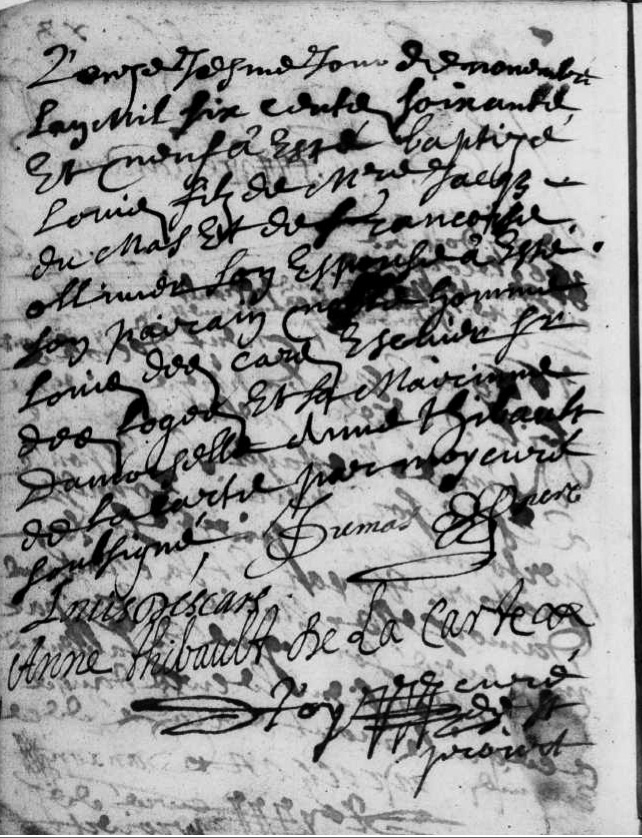 L'onziesme Jour de novembre
Lan Mil six cents soixante
Et neuf à Esté baptizé
Louis filz de Mre Jacq
du Mas Et de francoise
ollivier son Espouse à Esté
son pairain noble homme
Louis des cars Escuier sr
des loges Et sa Mairinne
Damoiselle Anne thibault
de la carte par moy curé
soubsigné Dumas
Louis Descars
Anne thibault de La Carte
Foy curé
de st